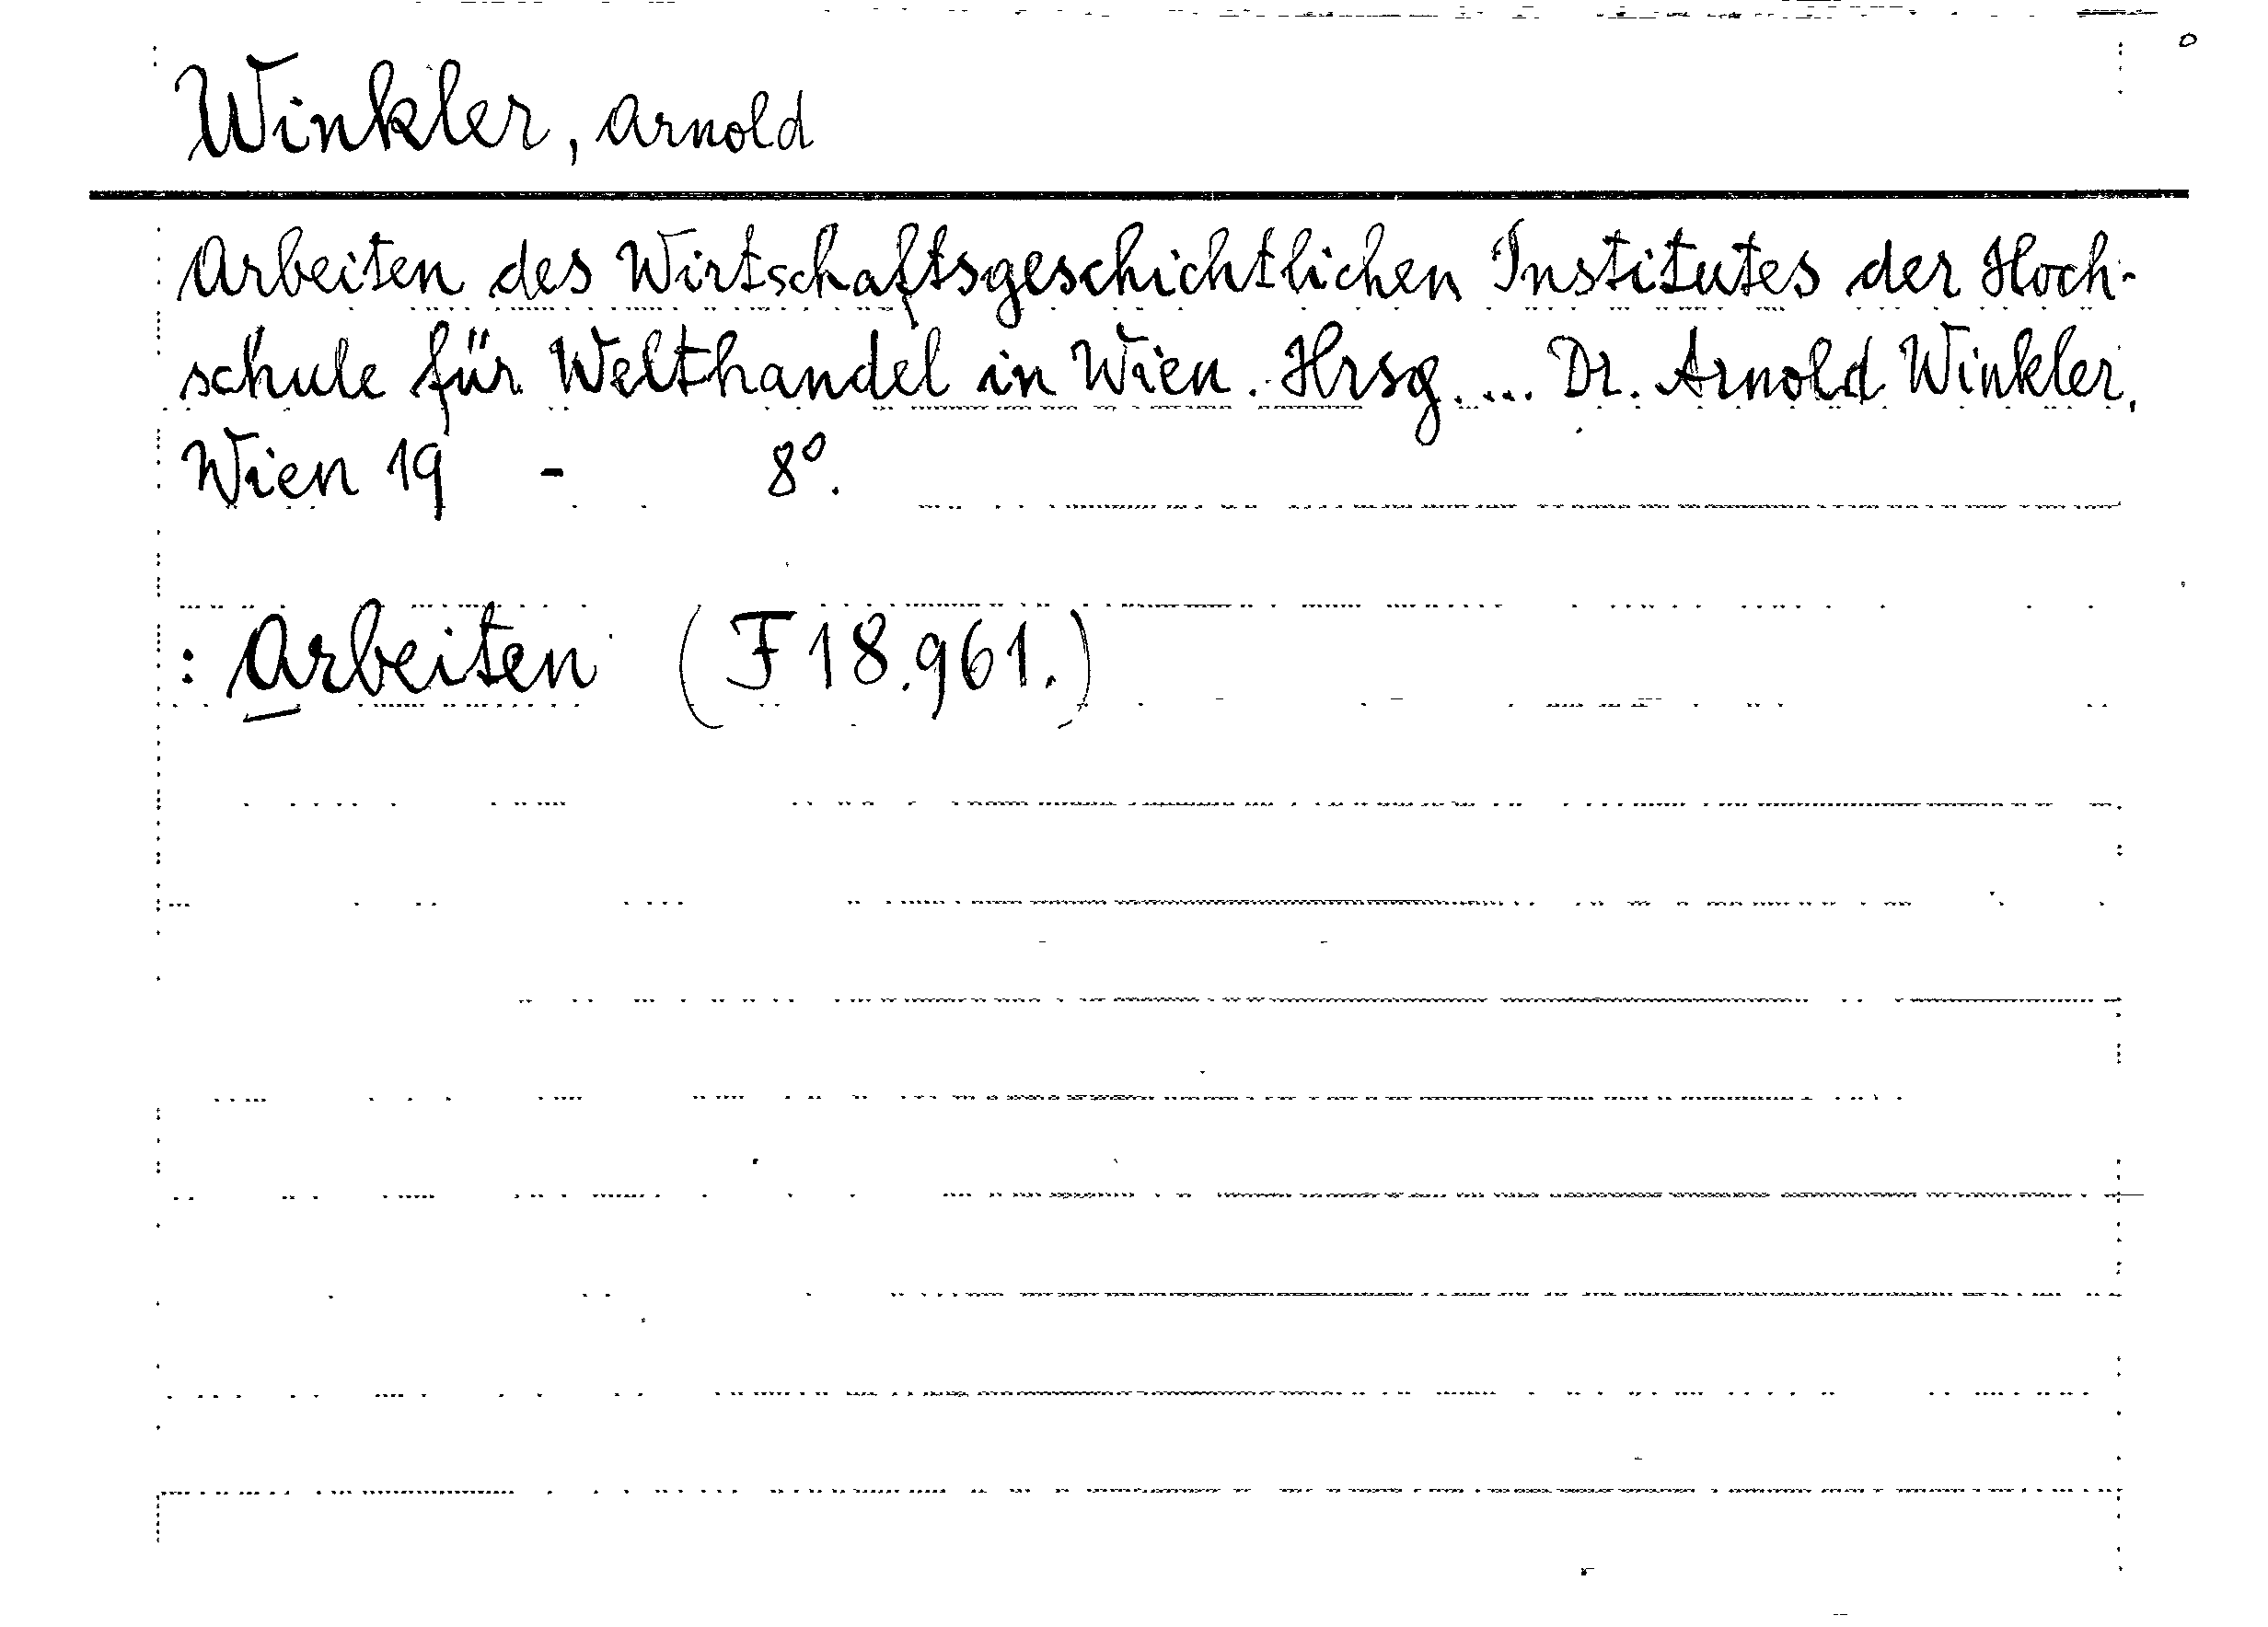 Winkler, Arnold
Arbeiten des Wirtschaftsgeschichtlichen Institutes der Hoch-
schule für Welthandel in Wien. Hrsg. ... Dr. Arnold Winkler.
Wien 19 - 8°.
: Arbeiten (F 18.961.)